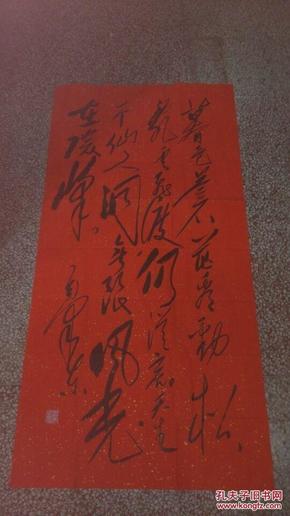 暮色苍茫看劲松
乱云飞渡仍从容天生
一个仙人洞无限风光
在险峰
毛泽东
孔夫子旧书网
www.kongfz.com